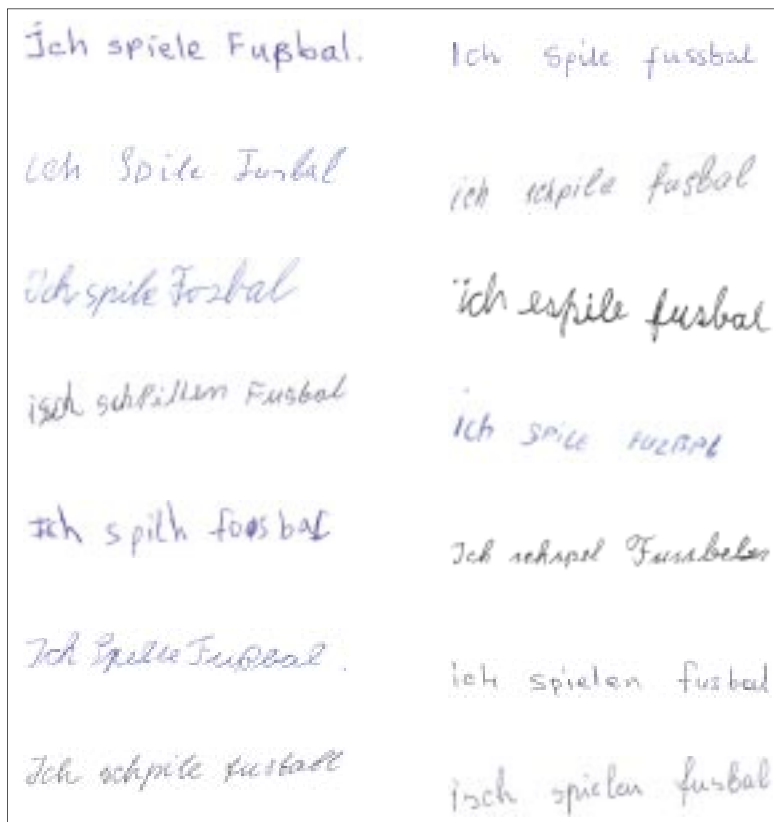 Ich spiele Fußbal.
ich Spile Fusbal
Ich spile Fosbal
isch schpillen Fusbal
Ich spilh foosbal
Ich Spielie Fußbal.
Ich schpile fusball
Ich Spile fussbal
ich schpile fusbal
ich espile fusbal
ich SPILE FUZBAL
Ich schspel Fussbelen
ich spielen fusbal
isch spielen fusbal